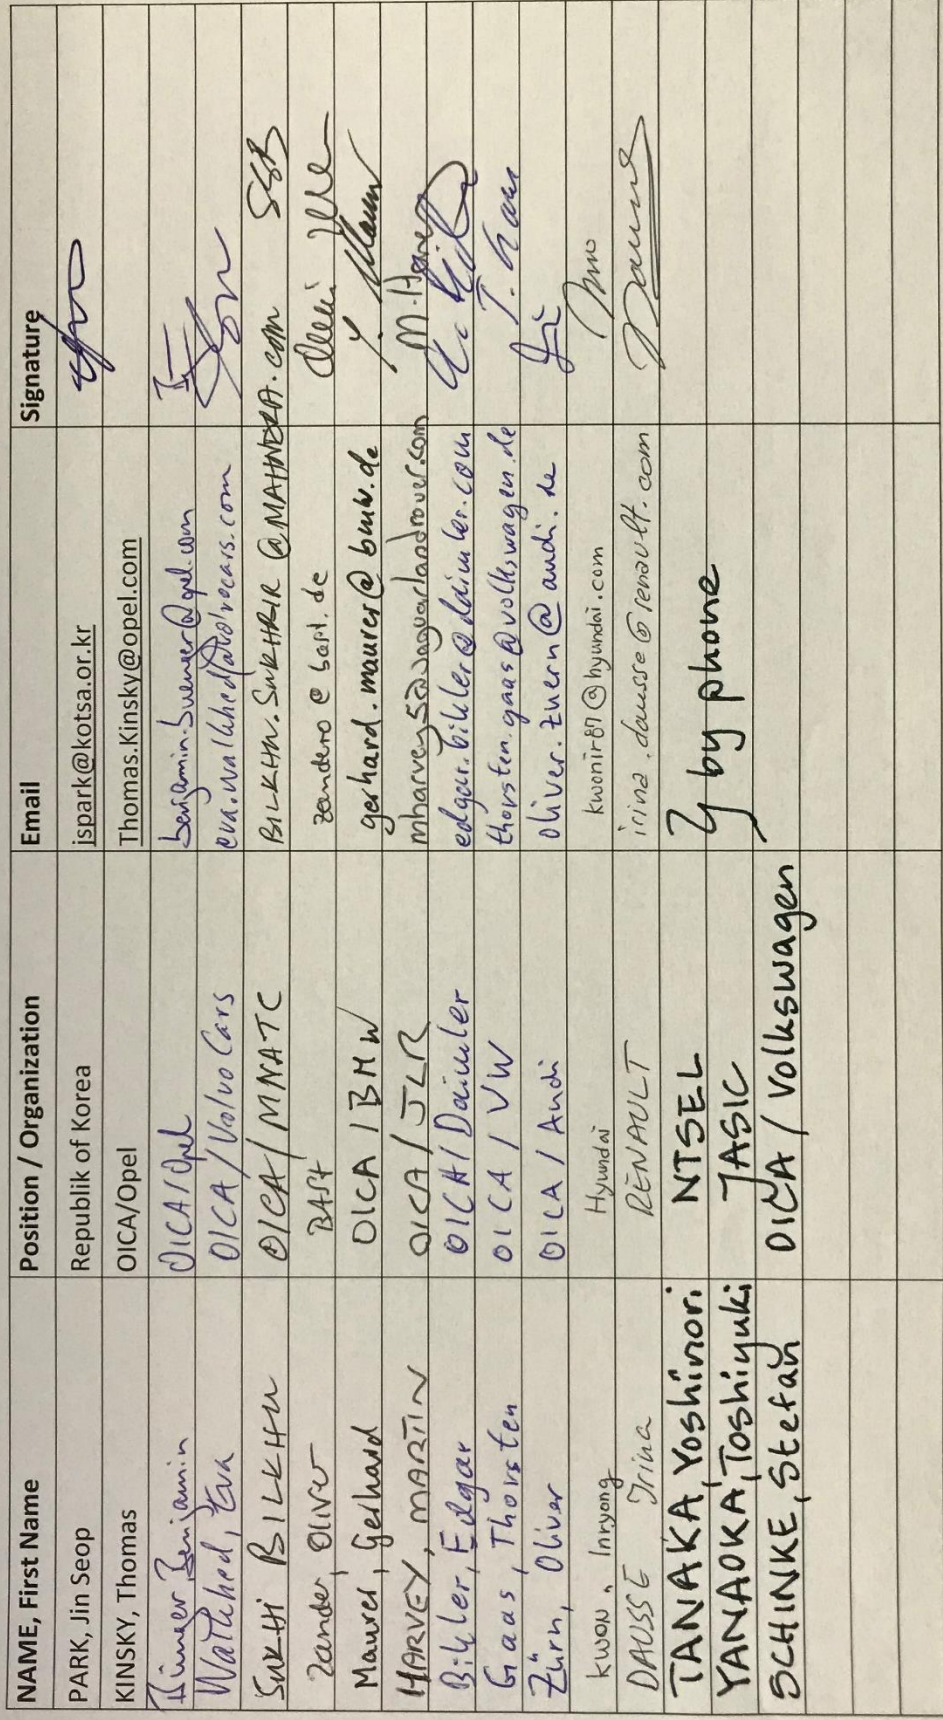 NAME, First Name Position / Organization Email Signature
PARK, Jin Seop Republik of Korea jspark@kotsa.or.kr
KINSKY, Thomas OICA/Opel Thomas.Kinsky@opel.com
Benjamin OICA/Opel
Wallhed, Eva OICA/Volvo Cars eva.wallhed@volvocars.com
SUKHI BILKHU OICA/MNATC BILKHU.SUKHBIR@MAHINDRA.com SSB
Zander, Oliver BASt zander@bast.de
Maurer, Gerhard OICA/BMW gerhard.maurer@bmw.de
HARVEY, MARTIN OICA/JLR mharvey5@jaguarlandrover.com M. Harvey
Bihler, Edgar OICA/Daimler edgar.bihler@daimler.com
Gaas, Thorsten OICA/VW thorsten.gaas@volkswagen.de T. Gaas
Zürn, Oliver OICA/Audi oliver.zuern@audi.de
Kwon, Inryong Hyundai kwonir87@hyundai.com
DAUSSE Irina RENAULT irina.dausse@renault.com Dausse
TANAKA, Yoshinori NTSEL
YANAOKA, Toshiyuki JASIC by phone
SCHINKE, Stefan OICA/Volkswagen